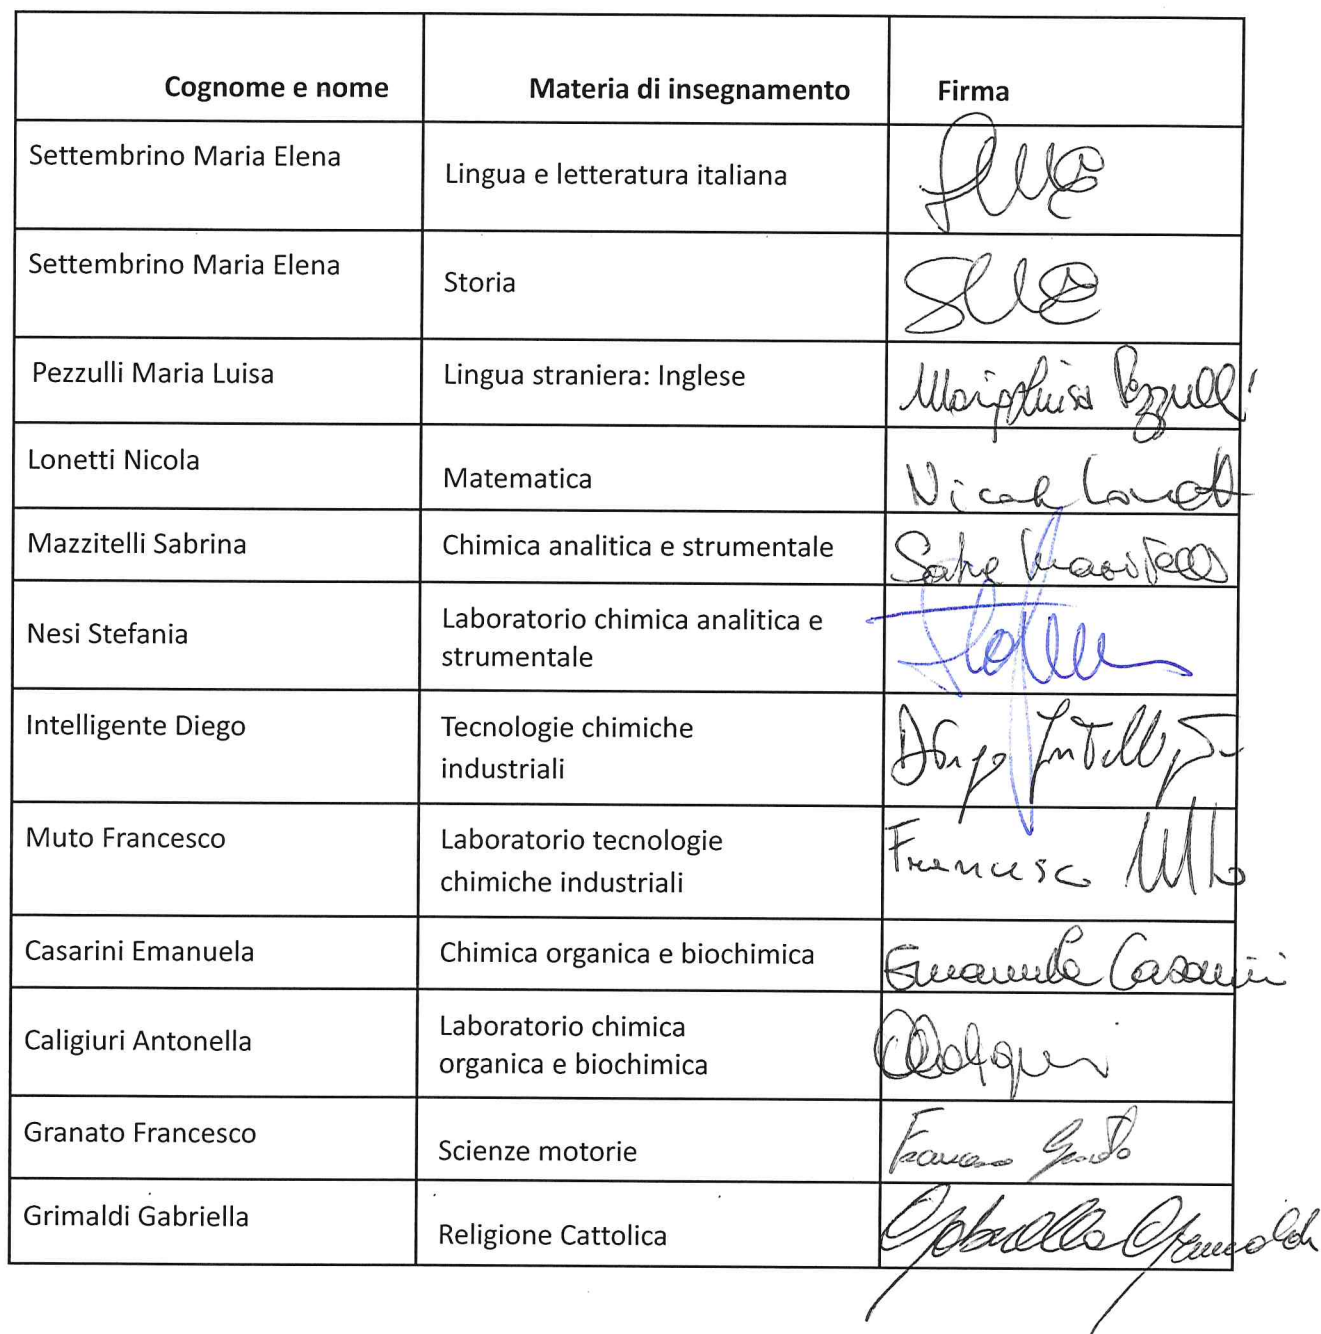 Cognome e nome Materia di insegnamento Firma
Settembrino Maria Elena
Lingua e letteratura italiana
Settembrino Maria Elena
Storia
Pezzulli Maria Luisa Lingua straniera: Inglese Marialuisa Pezzulli
Lonetti Nicola
Matematica Nicola Lonetti
Mazzitelli Sabrina Chimica analitica e strumentale
Nesi Stefania
Laboratorio chimica analitica e
strumentale
Intelligente Diego
Tecnologie chimiche
industriali
Muto Francesco
Laboratorio tecnologie
chimiche industriali
Francesco Muto
Casarini Emanuela Chimica organica e biochimica Emanuela Casarini
Caligiuri Antonella
Laboratorio chimica
organica e biochimica
Granato Francesco
Scienze motorie Francesco Granato
Grimaldi Gabriella
Religione Cattolica Gabriella Grimaldi